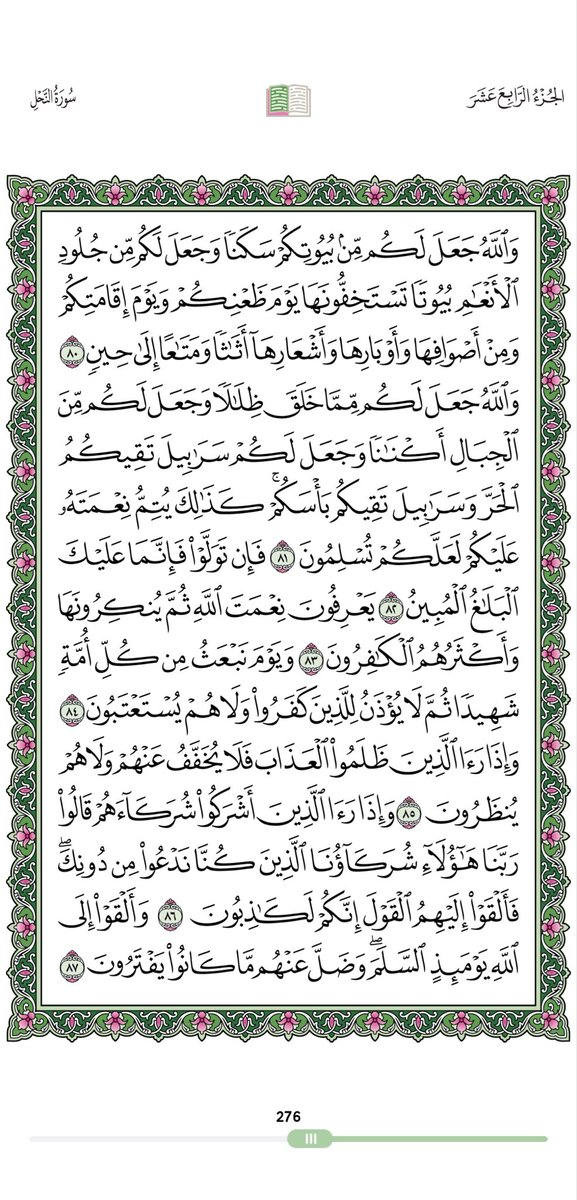 الجُزْءُ الرَّابِعَ عَشَرَ
سُورَةُ النَّحْلِ
وَٱللَّهُ جَعَلَ لَكُم مِّنۢ بُيُوتِكُمْ سَكَنًا وَجَعَلَ لَكُم مِّن جُلُودِ
ٱلْأَنْعَٰمِ بُيُوتًا تَسْتَخِفُّونَهَا يَوْمَ ظَعْنِكُمْ وَيَوْمَ إِقَامَتِكُمْ
وَمِنْ أَصْوَافِهَا وَأَوْبَارِهَا وَأَشْعَارِهَآ أَثَٰثًا وَمَتَٰعًا إِلَىٰ حِينٍ ٨٠
وَٱللَّهُ جَعَلَ لَكُم مِّمَّا خَلَقَ ظِلَٰلًا وَجَعَلَ لَكُم مِّنَ
ٱلْجِبَالِ أَكْنَٰنًا وَجَعَلَ لَكُمْ سَرَٰبِيلَ تَقِيكُمُ
ٱلْحَرَّ وَسَرَٰبِيلَ تَقِيكُم بَأْسَكُمْ ۚ كَذَٰلِكَ يُتِمُّ نِعْمَتَهُۥ
عَلَيْكُمْ لَعَلَّكُمْ تُسْلِمُونَ ٨١ فَإِن تَوَلَّوْا۟ فَإِنَّمَا عَلَيْكَ
ٱلْبَلَٰغُ ٱلْمُبِينُ ٨٢ يَعْرِفُونَ نِعْمَتَ ٱللَّهِ ثُمَّ يُنكِرُونَهَا
وَأَكْثَرُهُمُ ٱلْكَٰفِرُونَ ٨٣ وَيَوْمَ نَبْعَثُ مِن كُلِّ أُمَّةٍ
شَهِيدًا ثُمَّ لَا يُؤْذَنُ لِلَّذِينَ كَفَرُوا۟ وَلَا هُمْ يُسْتَعْتَبُونَ ٨٤
وَإِذَا رَءَا ٱلَّذِينَ ظَلَمُوا۟ ٱلْعَذَابَ فَلَا يُخَفَّفُ عَنْهُمْ وَلَا هُمْ
يُنظَرُونَ ٨٥ وَإِذَا رَءَا ٱلَّذِينَ أَشْرَكُوا۟ شُرَكَآءَهُمْ قَالُوا۟
رَبَّنَا هَٰٓؤُلَآءِ شُرَكَآؤُنَا ٱلَّذِينَ كُنَّا نَدْعُوا۟ مِن دُونِكَ ۖ
فَأَلْقَوْا۟ إِلَيْهِمُ ٱلْقَوْلَ إِنَّكُمْ لَكَٰذِبُونَ ٨٦ وَأَلْقَوْا۟ إِلَى
ٱللَّهِ يَوْمَئِذٍ ٱلسَّلَمَ ۖ وَضَلَّ عَنْهُم مَّا كَانُوا۟ يَفْتَرُونَ ٨٧
276